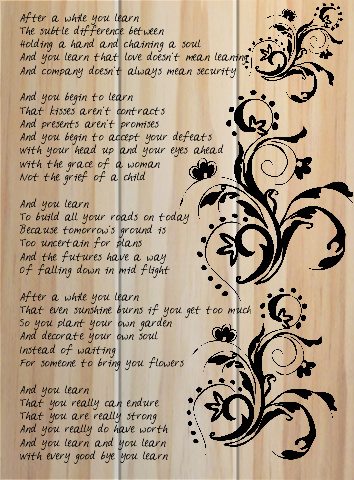 After a while you learn
The subtle difference between
Holding a hand and chaining a soul
And you learn that love doesn't mean leaning
And company doesn't always mean security
And you begin to learn
That kisses aren't contracts
And presents aren't promises
And you begin to accept your defeats
with your head up and your eyes ahead
with the grace of a woman
Not the grief of a child
And you learn
To build all your roads on today
Because tomorrow's ground is
Too uncertain for plans
And the futures have a way
Of falling down in mid flight
After a while you learn
That even sunshine burns if you get too much
So you plant your own garden
And decorate your own soul
Instead of waiting
For someone to bring you flowers
And you learn
That you really can endure
That you are really strong
And you really do have worth
And you learn and you learn
with every good bye you learn